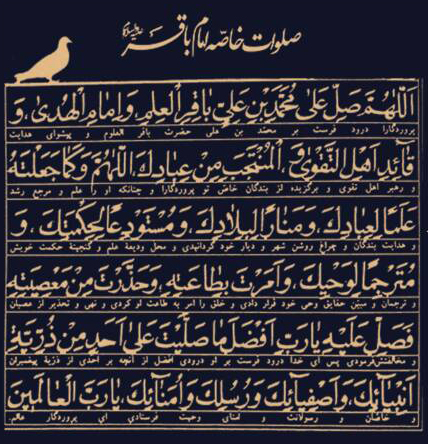 صلوات خاصه امام باقر علیه‌السلام
اَللّٰهُمَّ صَلِّ عَلىٰ مُحَمَّدِبْنِ عَلِيٍّ باقِرِ الْعِلْمِ وَاِمامِ الْهُدىٰ، وَ
پروردگارا درود فرست بر محمد بن علی حضرت باقر العلوم و پیشوای هدایت
قائِدِ اَهْلِ التَّقْوىٰ وَ الْمُنْتَجَبِ مِنْ عِبادِكَ اَللّٰهُمَّ وَكَما جَعَلْتَهُ
و رهبر اهل تقوی و برگزیده از بندگان خاص تو پروردگارا و چنانکه او را علم و مرجع رشد
عَلَماً لِعِبادِكَ، وَمَناراً لِبِلادِكَ، وَمُسْتَوْدَعاً لِحِكْمَتِكَ، وَ
و هدایت بندگان و چراغ روشن شهر و دیار خود گردانیدی و محل ودیعهٔ علم و گنجینهٔ حکمت خویش
مُتَرْجِماً لِوَحْيِكَ، وَاَمَرْتَ بِطاعَتِهِ، وَحَذَّرْتَ مِنْ مَعْصِيَتِهِ
و ترجمان و مبیّن حقایق وحی خود قرار دادی و خلق را امر به طاعت او کردی و نهی و تحذیر از عصیان
فَصَلِّ عَلَيْهِ يارَبِّ اَفْضَلَ ما صَلَّيْتَ عَلىٰ اَحَدٍ مِنْ ذُرِّيَّةِ
و مخالفتش فرمودی پس ای خدا درود فرست بر او درودی افضل از آنچه بر احدی از ذریّهٔ پیغمبران
اَنْبِيائِكَ، وَاَصْفِيائِكَ وَرُسُلِكَ وَاُمَنائِكَ، يارَبَّ الْعالَمينَ
و خاصان و رسولانت و امنای وحیت فرستادی ای پروردگار عالم